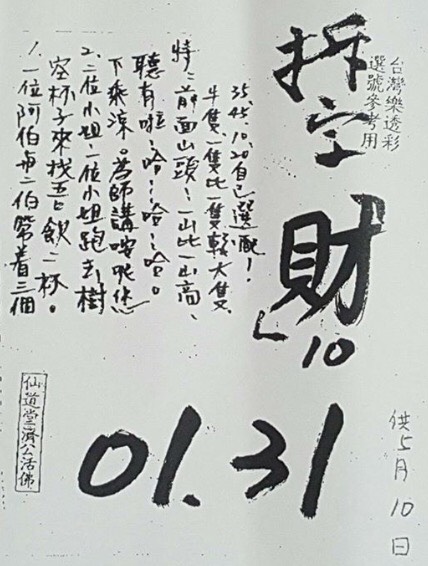 台灣樂透彩
選號參考用
拆字
財
10
01.31
1、一位阿伯再二伯帶着三個
空杯子來找吾飲二杯。
2、二位小姐一位小姐跑去樹
下乘涼。為師講
聽有啦!哈~哈~哈。
特:前面山頭~一山比一山高、
牛隻一隻比一隻較大隻
35.45.10.20自己選配!
仙道堂濟公活佛
供5月10日